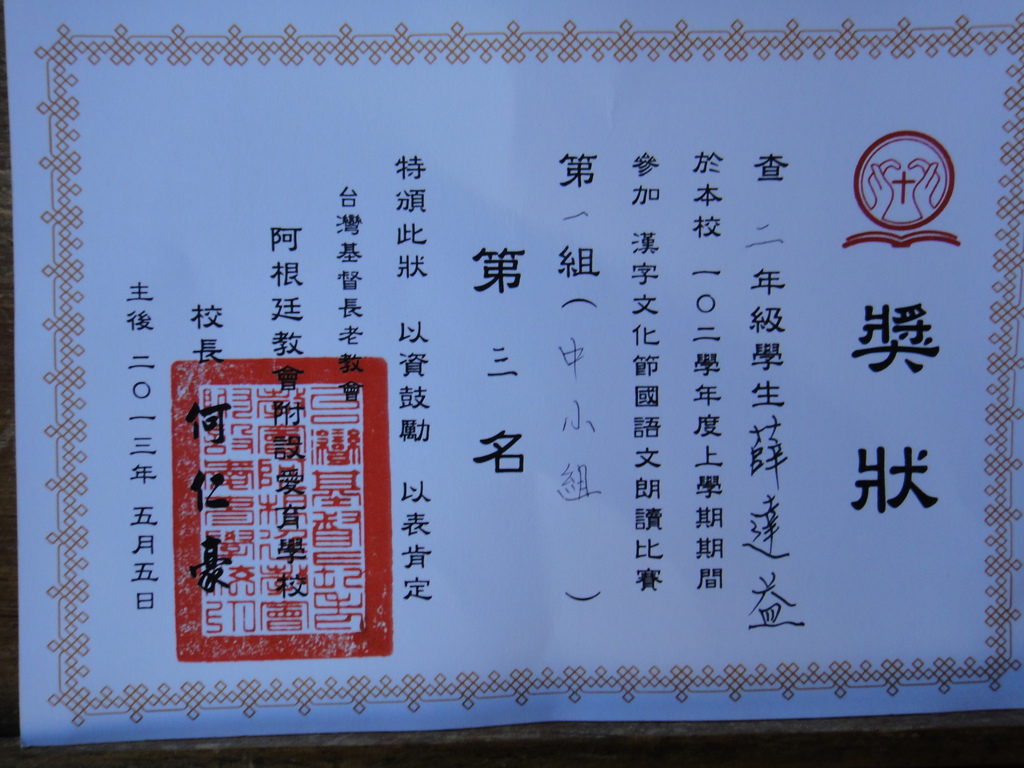 獎狀
查二年級學生薛達益
於本校 一〇二學年度上學期期間
參加 漢字文化節國語文朗讀比賽
第一組(中小組)
第三名
特頒此狀 以資鼓勵 以表肯定
台灣基督長老教會
阿根廷教會附設愛育學校
校長 何仁豪
主後 二〇一三年 五月五日